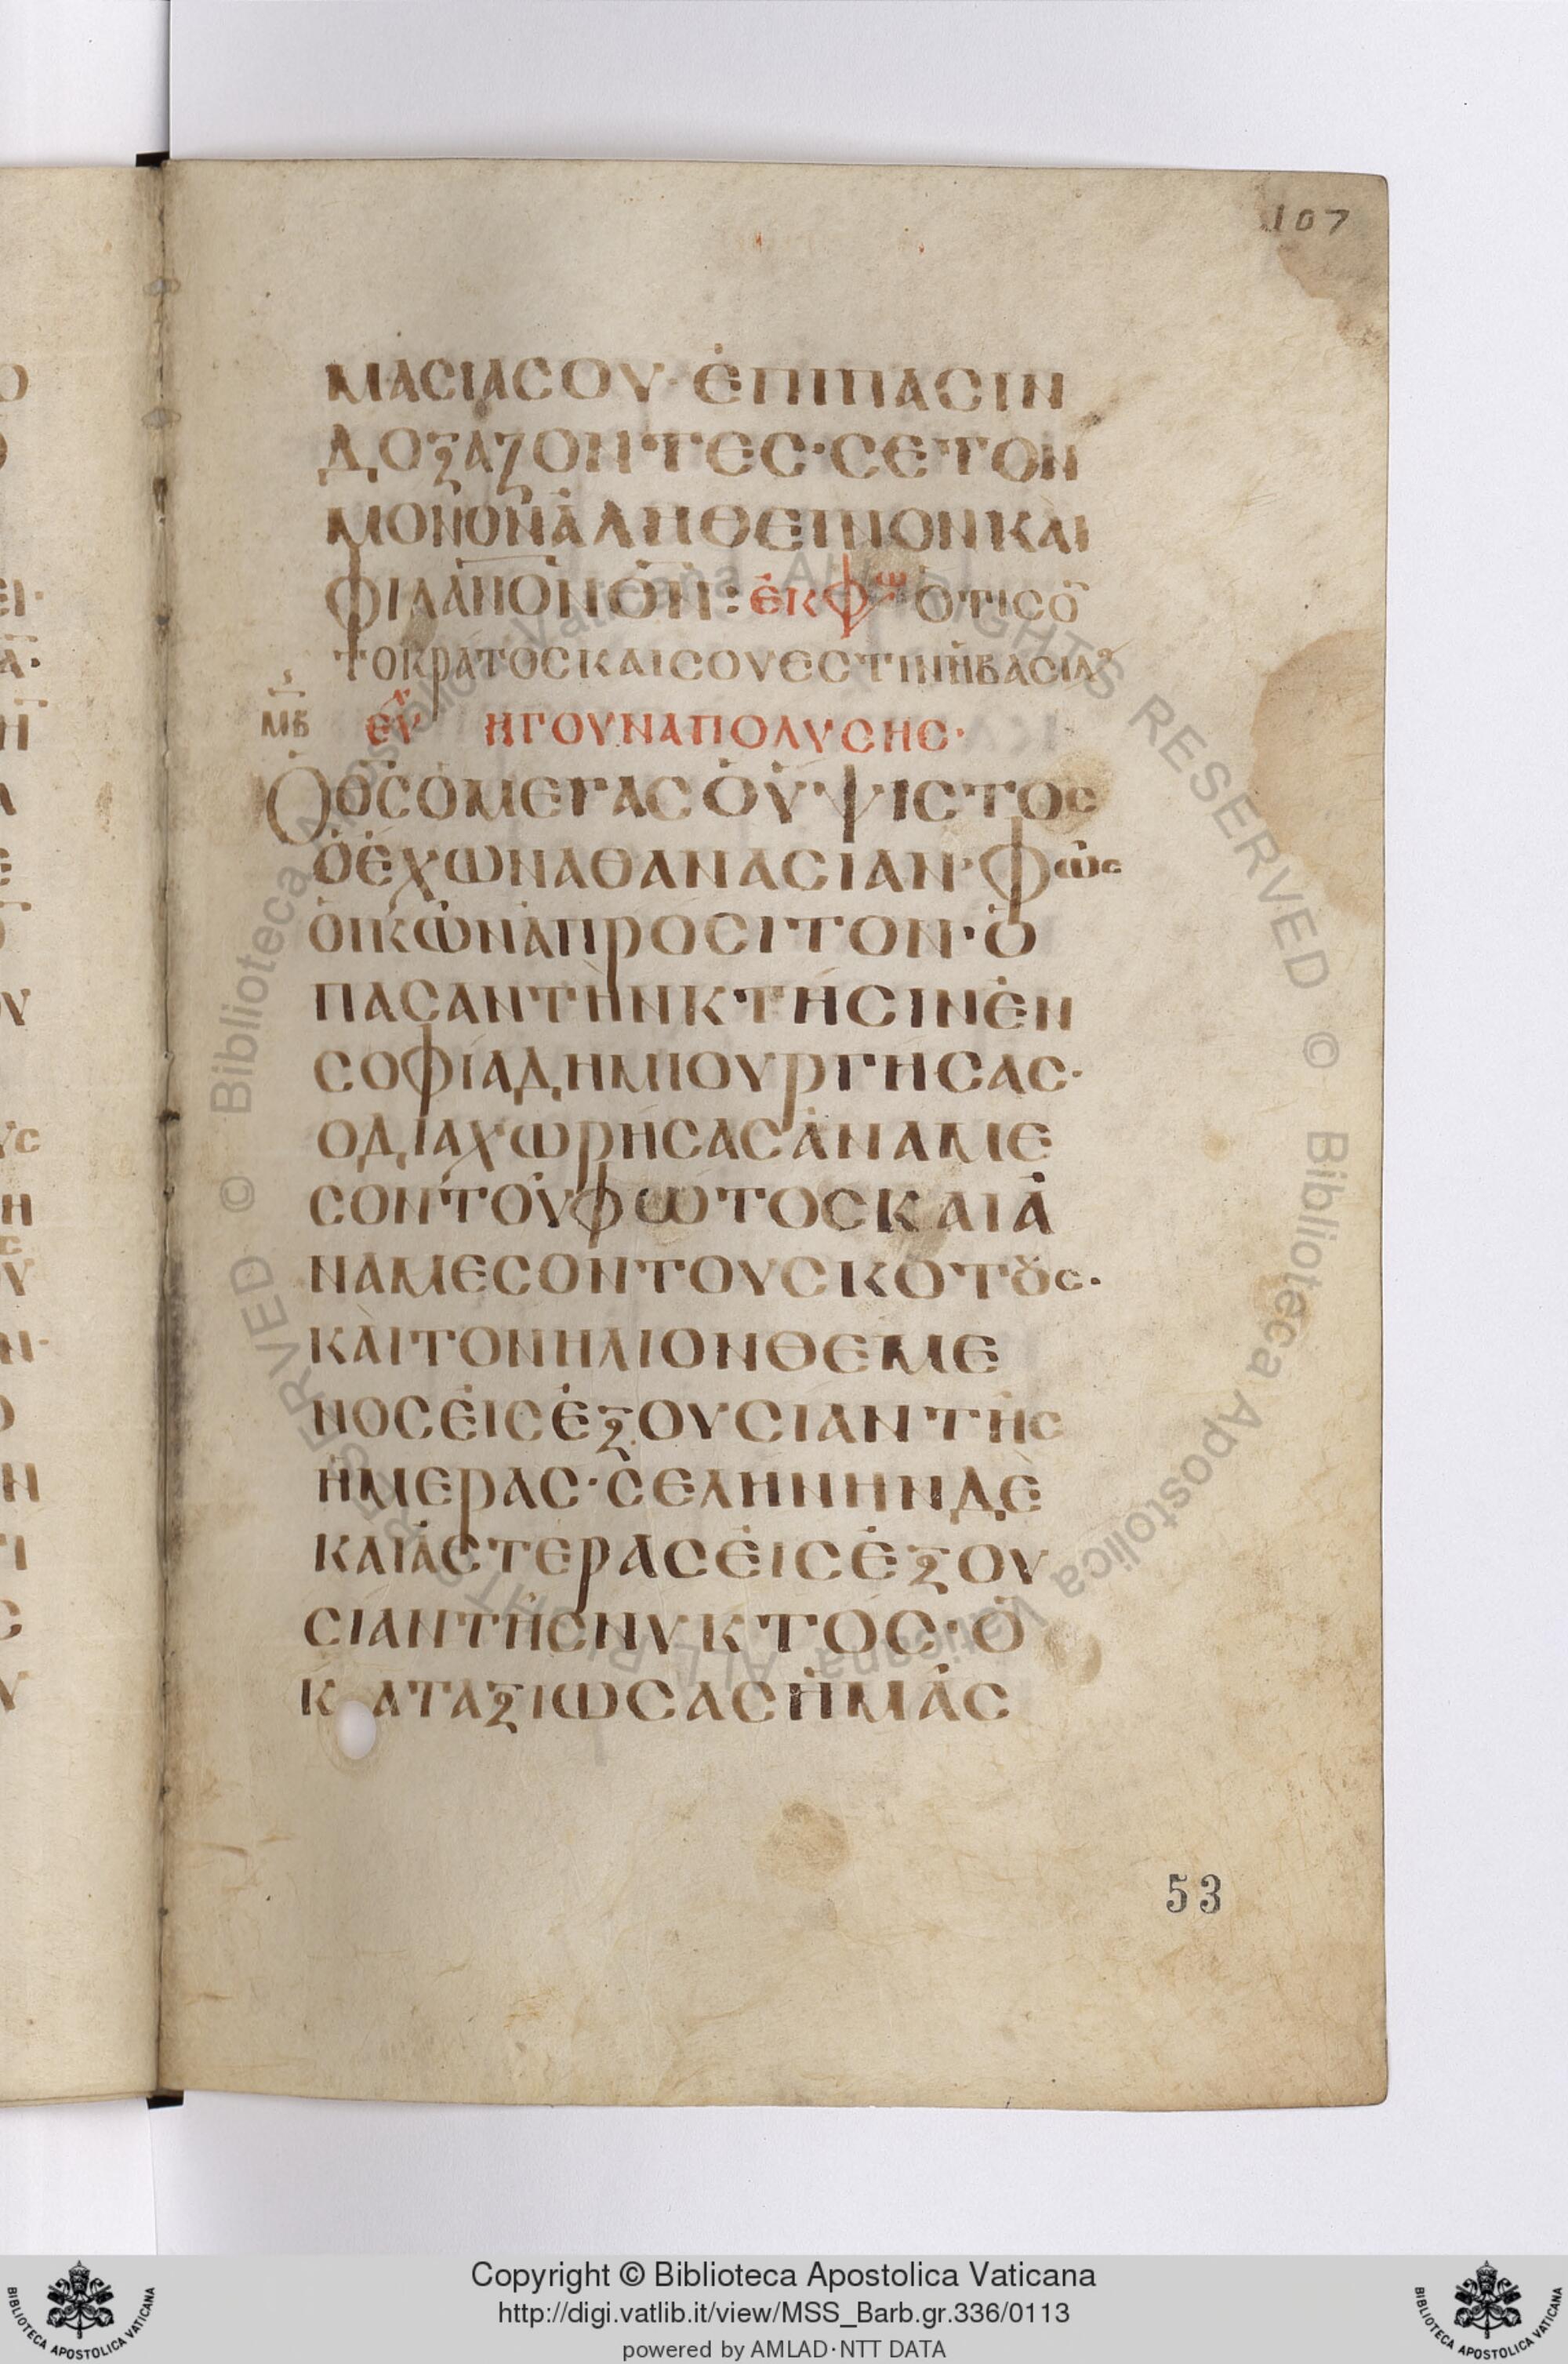 107
ΜΑCΙΑCΟΥ· ἐΠΙΠΑCΙΝ
ΔΟΞΑΖΟΝΤΕC·CΕΤΟΝ
ΜΟΝΟΝἀΛΗΘΕΙΝΟΝΚΑΙ
ΦΙΛΑΝΟΝΘΝ: ἐΚΦω ὉΤΙCȣ
ΤΟΚΡΑΤΟCΚΑΙCΟΥΕCΤΙΝἡΒΑCΙΛ
ΜΒ ΕΥΧ ΗΓΟΥΝΑΠΟΛΥCΗC·
ὉΘCὁΜΕΓΑCὁΥΨΙCΤΟC
ὁἔΧωΝΑΘΑΝΑCΙΑΝ·Φῶc
ὀΙΚῶΝἀΠΡΟCΙΤΟΝ·ὁ
ΠΑCΑΝΤῊΝΚΤΗCΙΝἐΝ
CΟΦΙΑΔΗΜΙΟΥΡΓΗCΑC·
ΟΔΙΑΧωΡΗCΑCἀΝΑΜΕ
CΟΝΤΟΥΦωΤΟCΚΑΙἀ
ΝΑΜΕCΟΝΤΟΥCΚΟΤȣC·
ΚΑΙΤΟΝΗΛΙΟΝΘΕΜΕ
ΝΟCἐΙCἐΞΟΥCΙΑΝΤΗC
ἡΜΕΡΑC·CΕΛΗΝΗΝΔῈ
ΚΑΙἀCΤΕΡΑCἐΙCἐΞΟΥ
CΙΑΝΤΗCΝΥΚΤΟC·ὁ
ΚΑΤΑΞΙωCΑCἡΜᾶC
53
© Biblioteca Apostolica Vaticana. ALL RIGHTS RESERVED © Biblioteca Apostolica Vaticana. ALL RIGHTS RESERVED
Copyright © Biblioteca Apostolica Vaticana
http://digi.vatlib.it/view/MSS_Barb.gr.336/0113
powered by AMLAD·NTT DATA
BIBLIOTECA APOSTOLICA VATICANA
BIBLIOTECA APOSTOLICA VATICANA